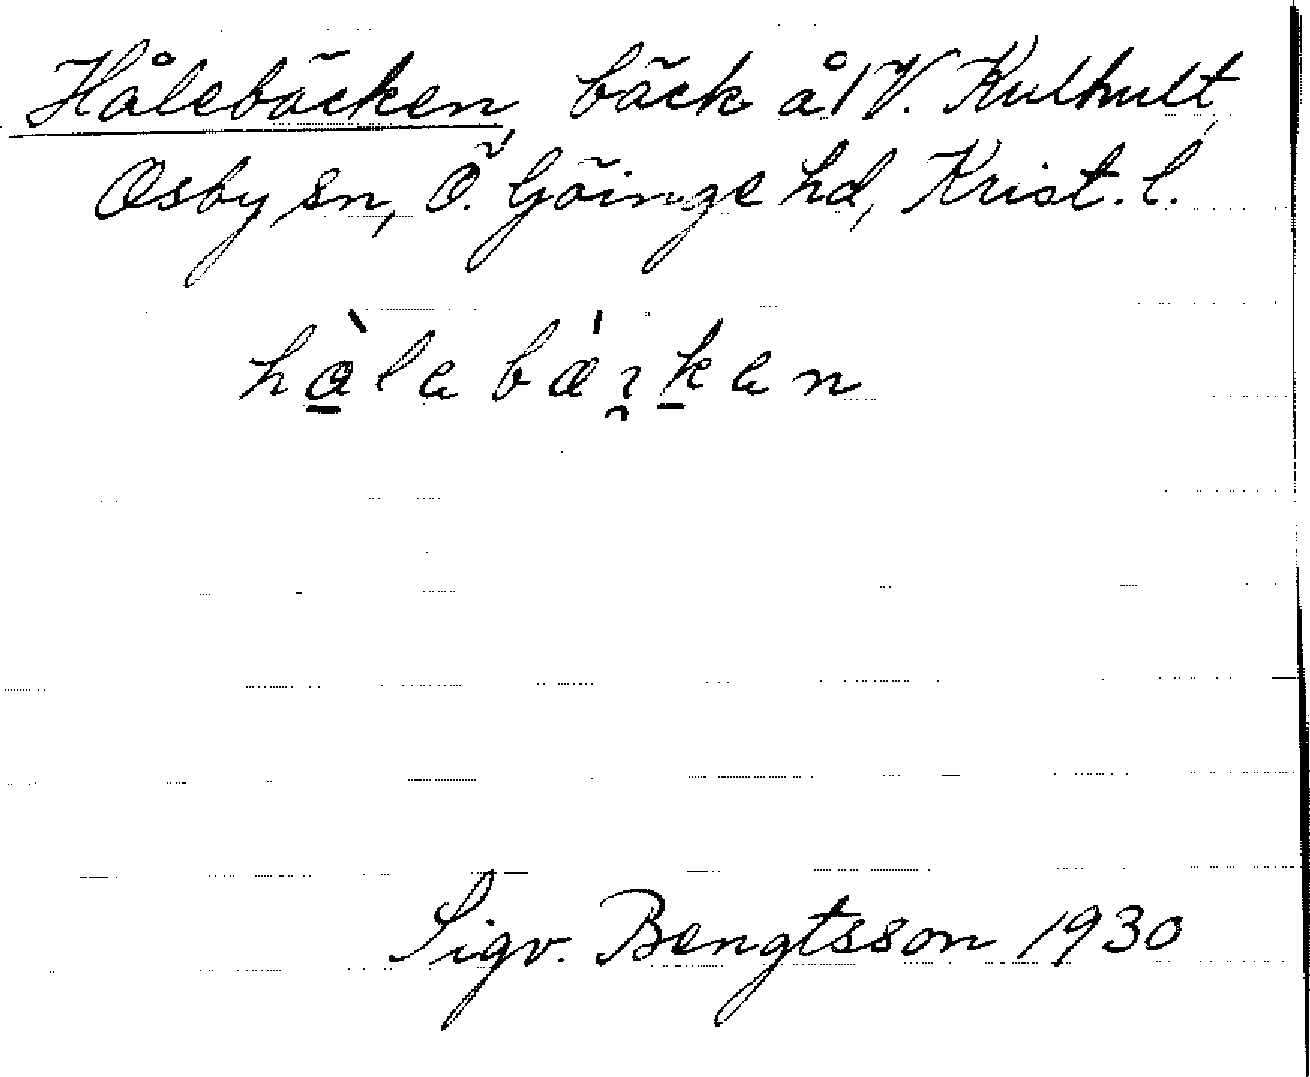 Hålebäcken, bäck å 1 V. Kulhult,
Osby sn, Ö. Göinge hd, Krist. l.
Sigv. Bengtsson 1930